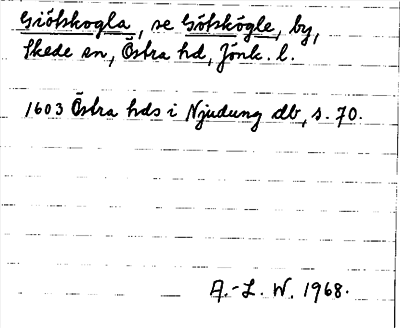 Giötskogla, se Götskögle, by,
Skede sn, Östra hd, Jönk. l.
1603 Östra hds i Njudung db, s. 70.
A.-L. W. 1968.